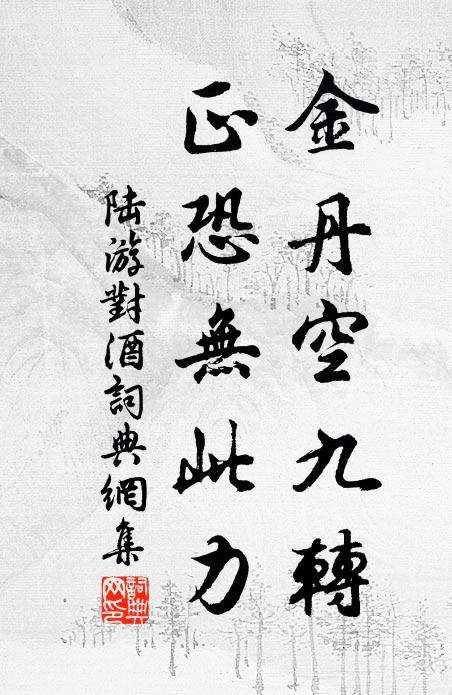 金丹空九轉
正恐無此力
陆游對酒詞典網集
詞典
网印